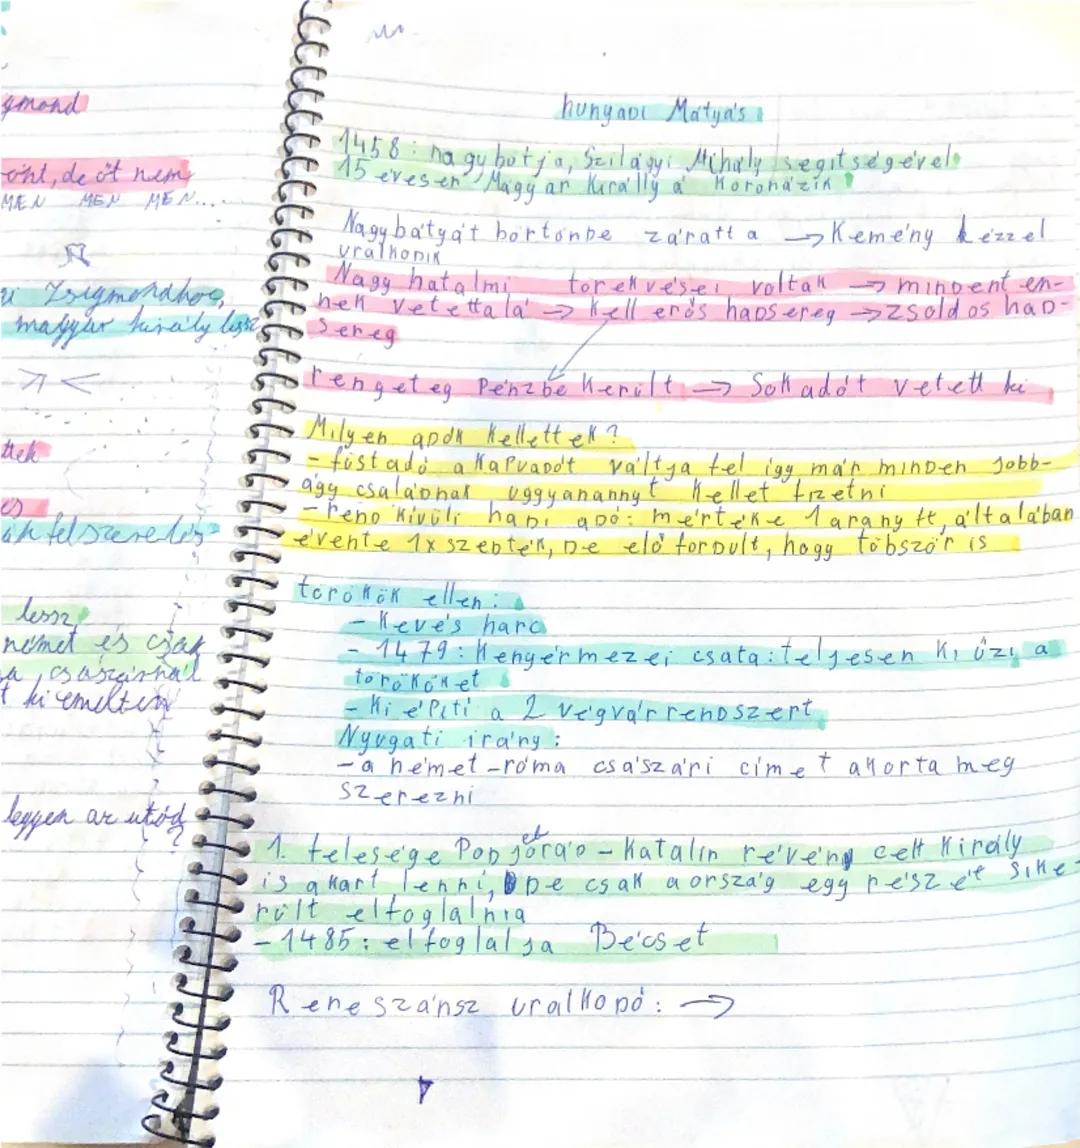 gmond
önt, de öt nem
MEN MEN MEN....
Zsigmondhoz,
magyar király lesz
ttek
és
ák felszerelés
lessz
német és csak
a császárnál
t ki emelten
legyen az utód
?
hunyadi Mátyás
1458: nagybátja, Szilágyi Mihály segítségével
15 évesen Magyar Királlyá Koronázik
Nagybátyát börtönbe záratta → Kemény kézzel
uralkodik
Nagy hatalmi törekvései voltak → mindent en-
nek vetett alá → Kell erős hadsereg → zsoldos had-
sereg
rengeteg Pénzbe Került → Sok adót vetett ki
Milyen adók Kellettek?
- füstadó a Kapuadót váltja fel így már minden jobb-
ágy családnak uggyanannyt Kellet fizetni
- rend Kívüli hadi adó: mértéke 1 arany ft, általában
évente 1x szedték, de elő fordult, hogy többször is
törökök ellen:
- Kevés harc
- 1479: Kenyérmezei csata: teljesen Ki űzi a
törököket
- Ki építi a 2 végvárrendszert
Nyugati irány:
- a német-róma császári címet akarta meg
szerezni
1. felesége Podjebrád - Katalin révén cseh Király
is akart lenni, de csak a ország egy részét sike-
rült elfoglalnia
- 1485: elfoglalja Bécset
Reneszánsz uralkodó: →